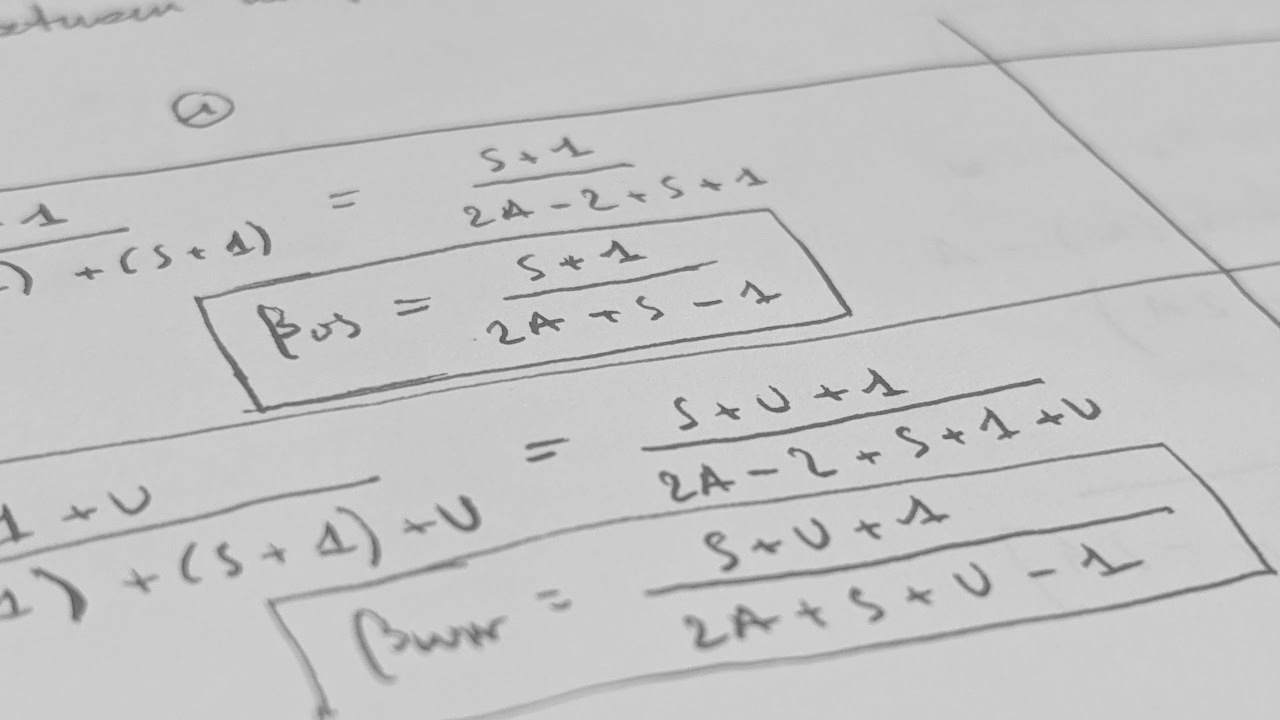 between
1
1 / ) + (S + 1) = S + 1 / 2A - 2 + S + 1
βUS = S + 1 / 2A + S - 1
1 + U / 1) + (S + 1) + U = S + U + 1 / 2A - 2 + S + 1 + U
β = S + U + 1 / 2A + S + U - 1